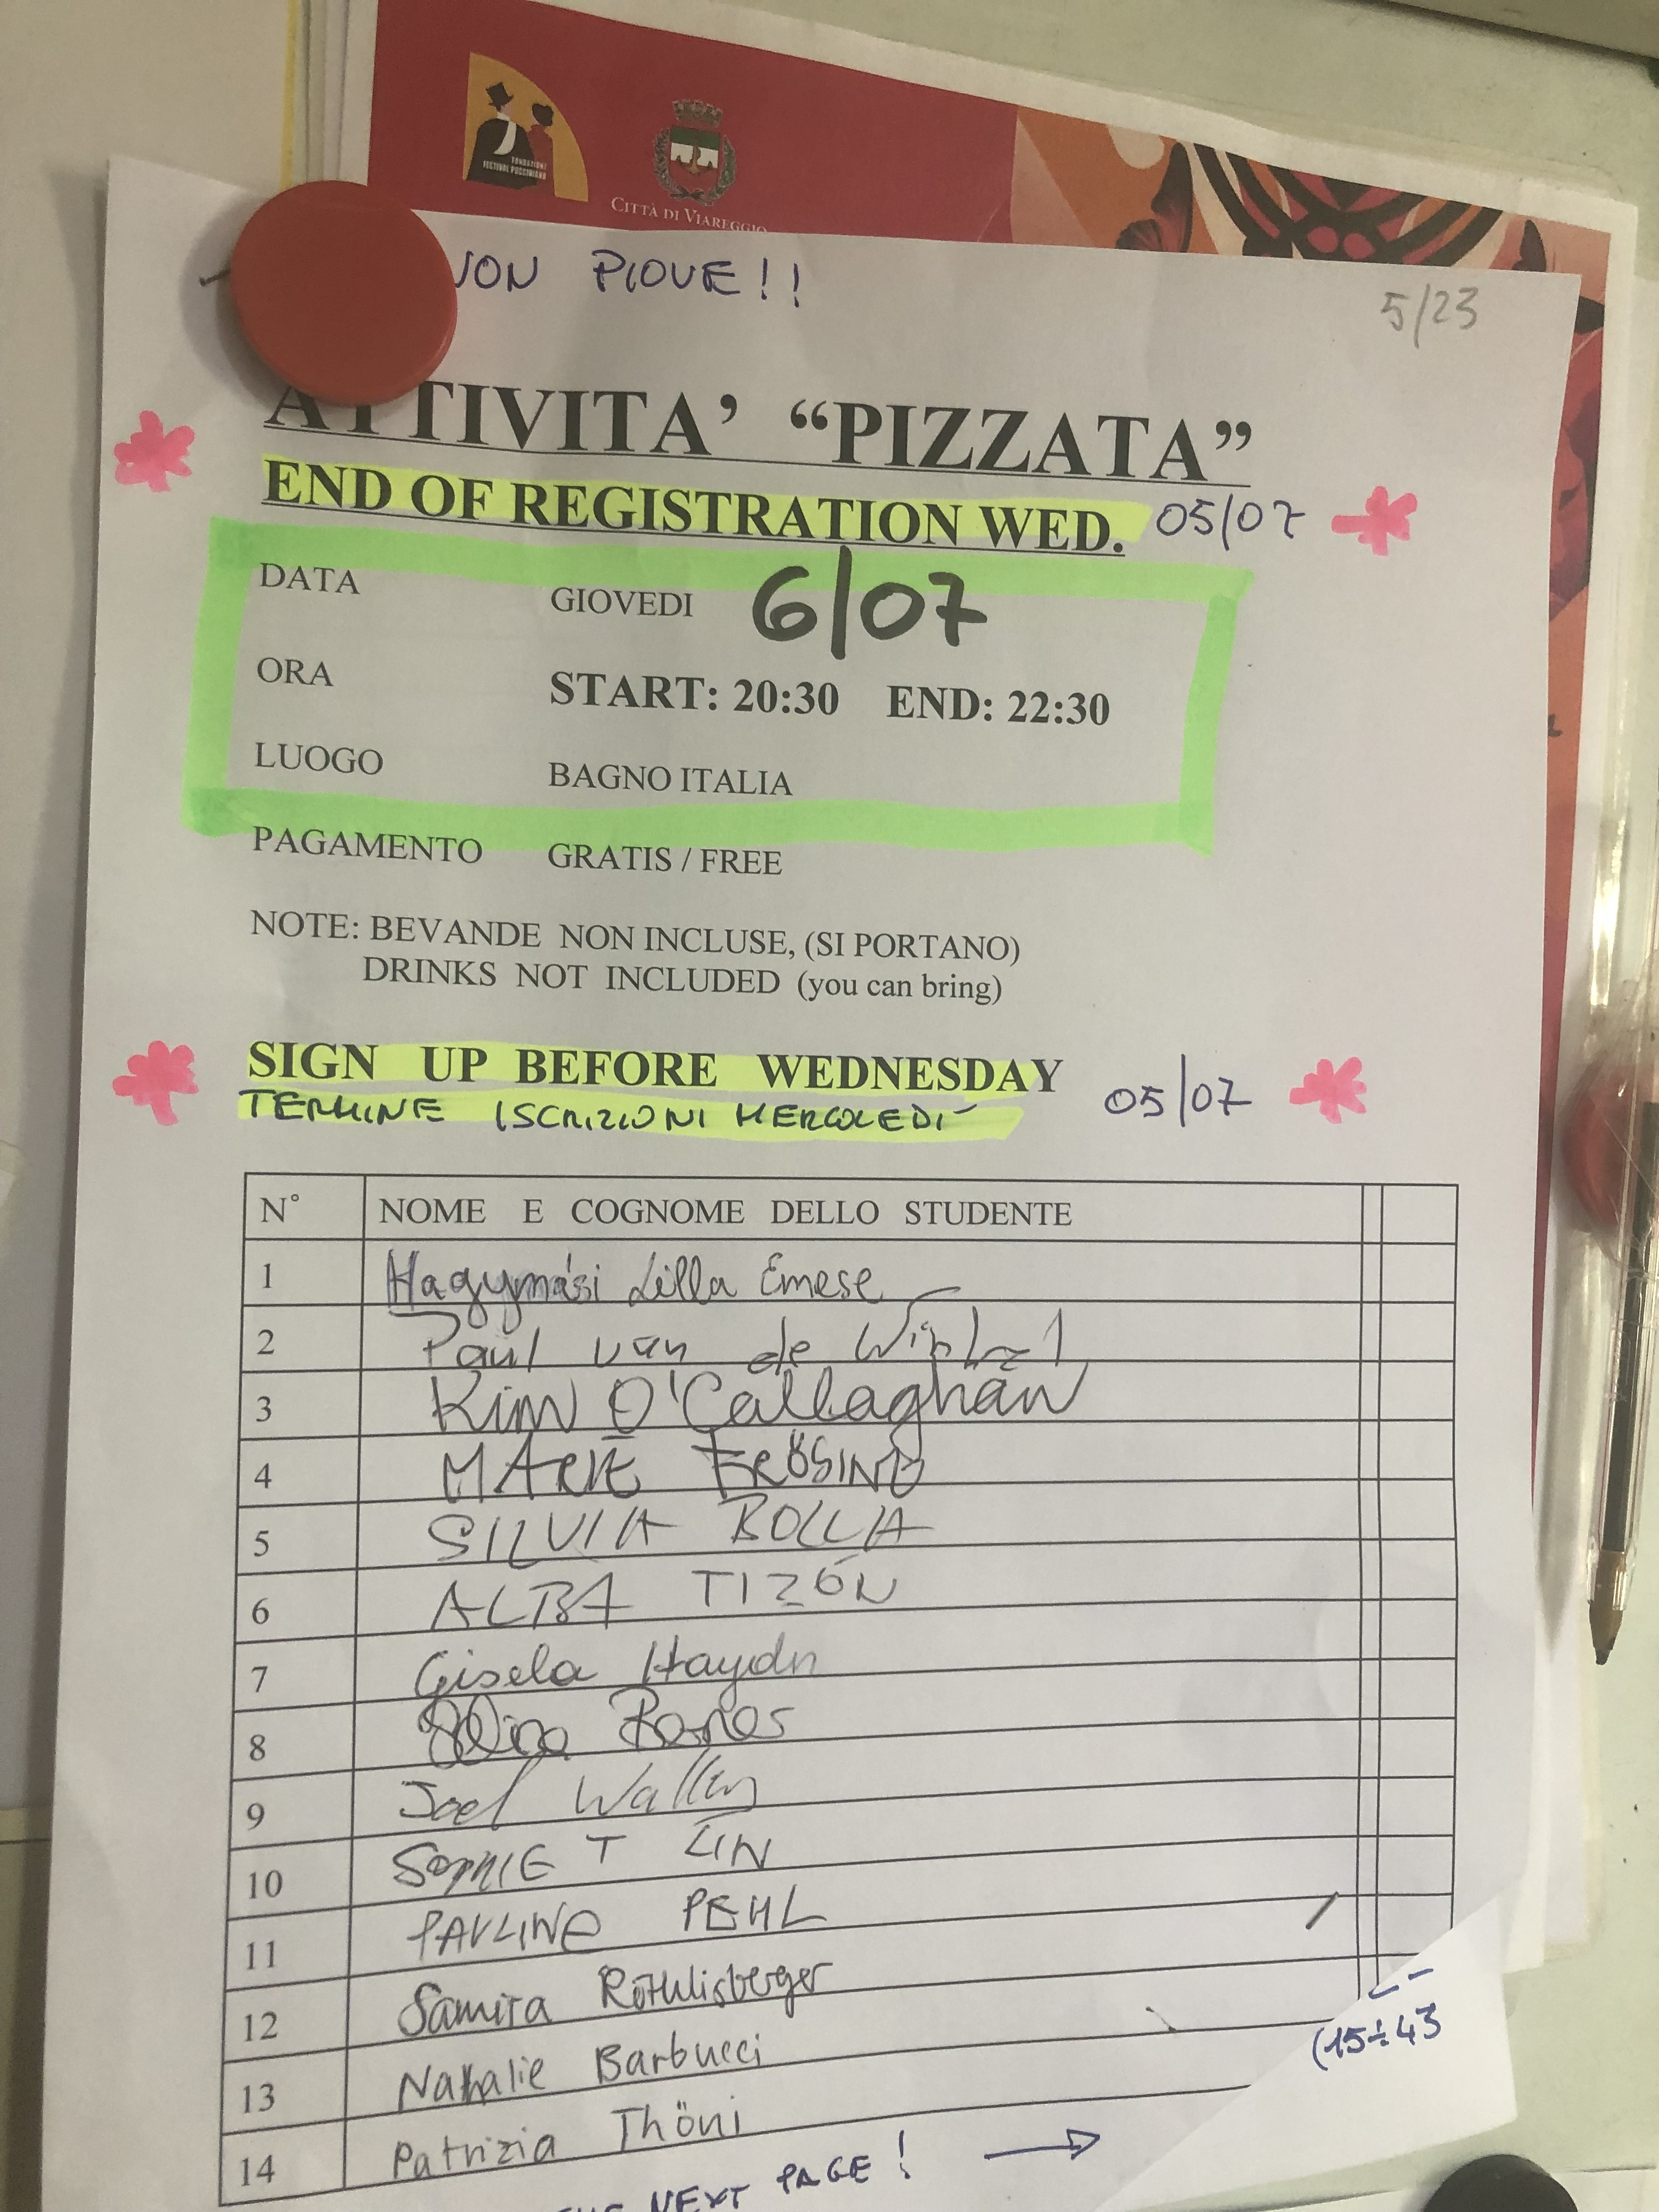 FONDAZIONE
FESTIVAL PUCCINIANO
CITTÀ DI VIAREGGIO
NON PIOVE!!
5/23
ATTIVITA' “PIZZATA”
END OF REGISTRATION WED. 05/07
DATA GIOVEDI 6/07
ORA START: 20:30 END: 22:30
LUOGO BAGNO ITALIA
PAGAMENTO GRATIS / FREE
NOTE: BEVANDE NON INCLUSE, (SI PORTANO)
DRINKS NOT INCLUDED (you can bring)
SIGN UP BEFORE WEDNESDAY 05/07
TERMINE ISCRIZIONI MERCOLEDI
N° NOME E COGNOME DELLO STUDENTE
1 Hagymási Lilla Emese
2 Paul van de Winkel
3 Kim O'Callaghan
4 MARIE
5 SILVIA BOLLA
6 ALBA TIZÓN
7 Gisela Haydn
8
9 Joel
10 SOPHIE T LIN
11 PAULINE PEHL
12 Samira Röthlisberger
13 Nathalie Barbucci
14 Patrizia Thöni
(15÷43
NEXT PAGE! →